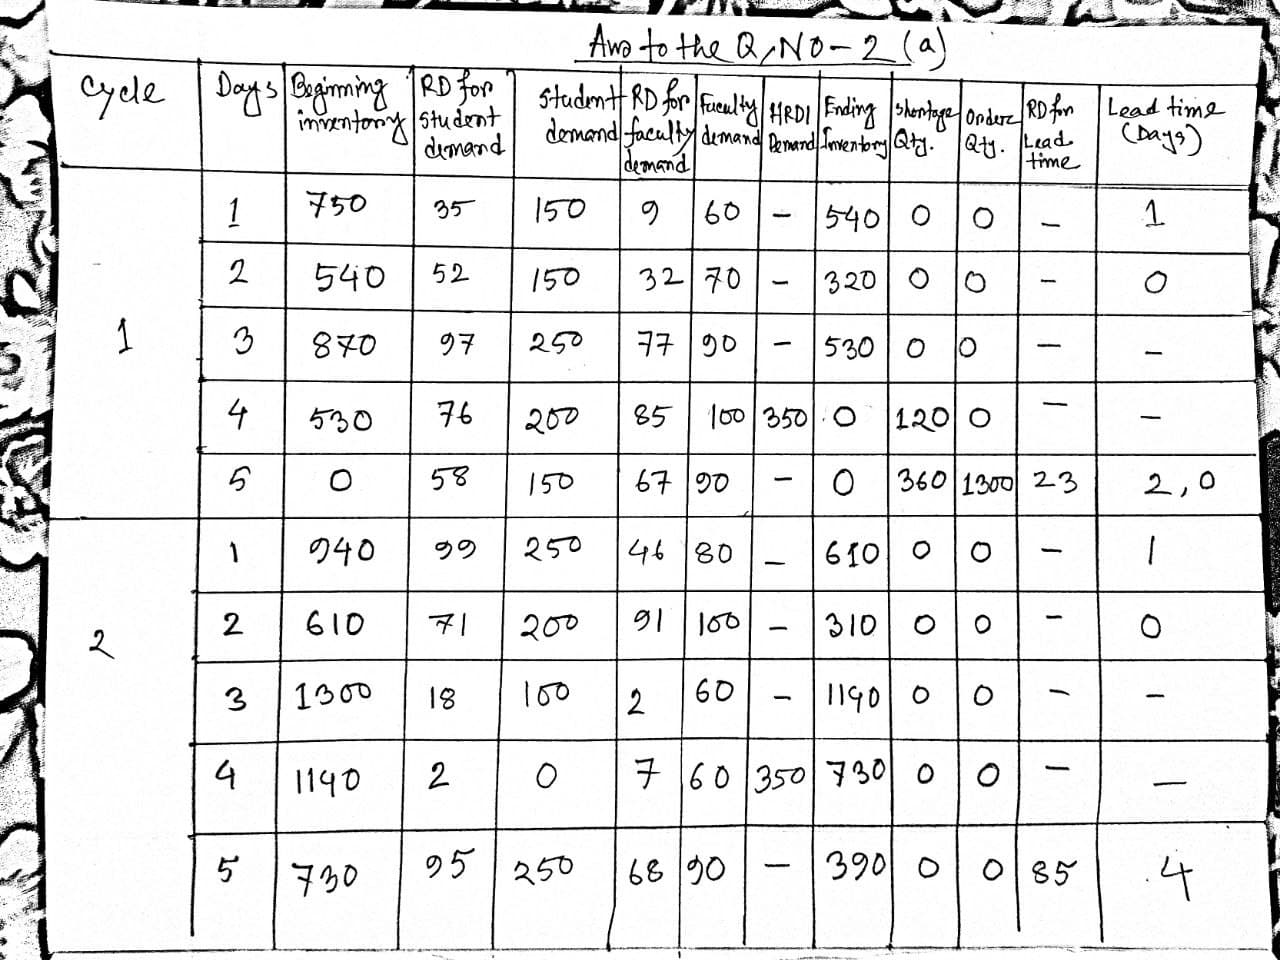 Ans to the Q,NO-2 (a)
Cycle Days Beginning inventory RD for student demand Student demand RD for faculty demand Faculty demand HRDI Demand Ending Inventory Shortage Qty. Order Qty. RD for Lead time Lead time (Days)
1
1 750 35 150 9 60 - 540 0 0 - 1
2 540 52 150 32 70 - 320 0 0 - 0
3 870 97 250 77 90 - 530 0 0 - -
4 530 76 200 85 100 350 0 120 0 - -
5 0 58 150 67 90 - 0 360 1300 23 2,0
2
1 940 99 250 46 80 - 610 0 0 - 1
2 610 71 200 91 100 - 310 0 0 - 0
3 1300 18 100 2 60 - 1190 0 0 - -
4 1140 2 0 7 60 350 730 0 0 - -
5 730 95 250 68 90 - 390 0 0 85 4